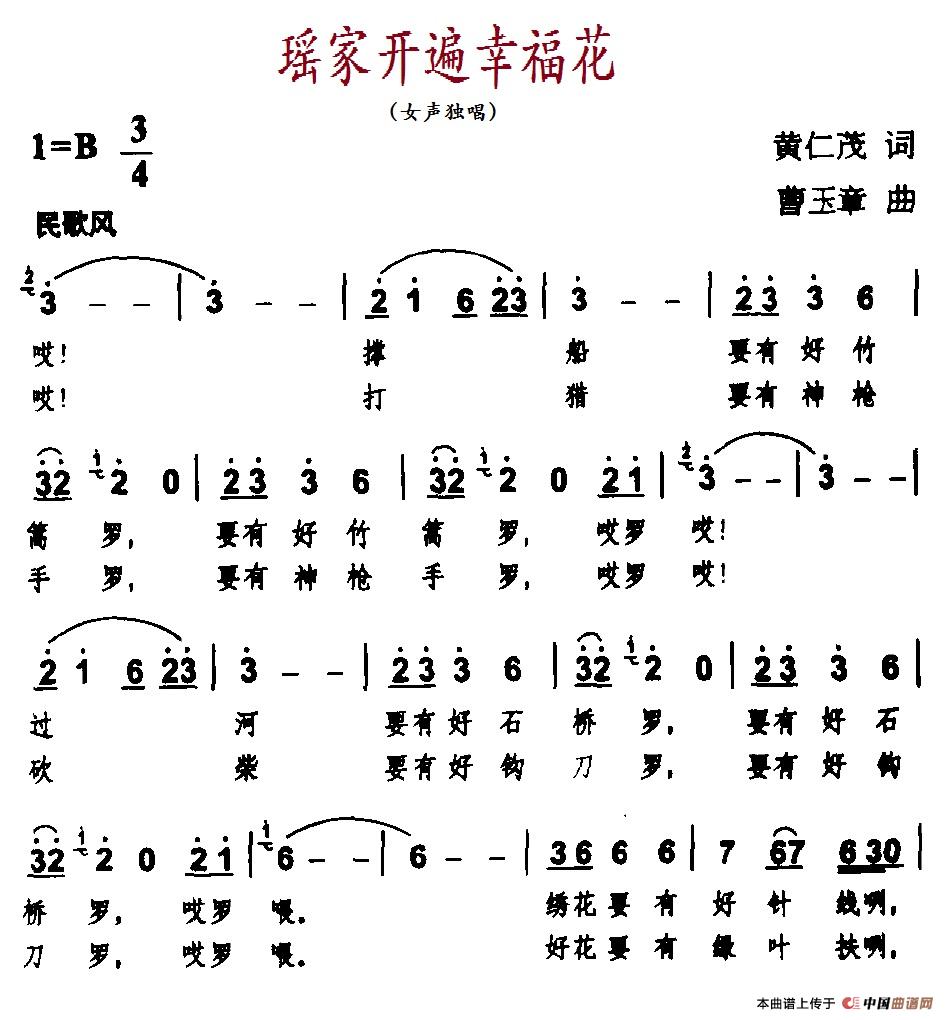 瑶家开遍幸福花
(女声独唱)
1=B 3/4
黄仁茂 词
民歌风
曹玉章 曲
2 3 - - | 3 - - | 2 1 6 23 | 3 - - | 23 3 6 |
哎! 撑 船 要有好竹
哎! 打 猎 要有神枪
32 1 2 0 | 23 3 6 | 32 1 2 0 21 | 2 3 - - | 3 - - |
篙 罗, 要有好竹 篙 罗, 哎罗 哎!
手 罗, 要有神枪 手 罗, 哎罗 哎!
2 1 6 23 | 3 - - | 23 3 6 | 32 1 2 0 | 23 3 6 |
过 河 要有好石 桥 罗, 要有好石
砍 柴 要有好钩 刀 罗, 要有好钩
32 1 2 0 21 | 1 6 - - | 6 - - | 36 6 6 | 7 67 630 |
桥 罗, 哎罗 喂。 绣花要有好针线咧,
刀 罗, 哎罗 喂。 好花要有绿叶扶咧,
本曲谱上传于 中国曲谱网